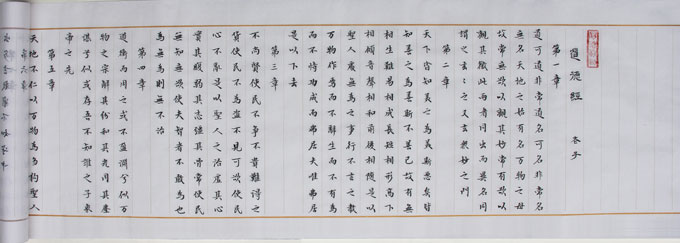 道德經 老子
第一章
道可道非常道名可名非常名
無名天地之始有名萬物之母
故常無欲以觀其妙常有欲以
觀其徼此兩者同出而異名同
謂之玄之又玄眾妙之門
第二章
天下皆知美之為美斯惡矣皆
知善之為善斯不善已故有無
相生難易相成長短相形高下
相傾音聲相和前後相隨是以
聖人處無為之事行不言之教
萬物作焉而不辭生而不有為
而不恃功成而弗居夫唯弗居
是以不去
第三章
不尚賢使民不爭不貴難得之
貨使民不為盜不見可欲使民
心不亂是以聖人之治虛其心
實其腹弱其志強其骨常使民
無知無欲使夫智者不敢為也
為無為則無不治
第四章
道沖而用之或不盈淵兮似萬
物之宗解其紛和其光同其塵
湛兮似或存吾不知誰之子象
帝之先
第五章
天地不仁以萬物為芻狗聖人